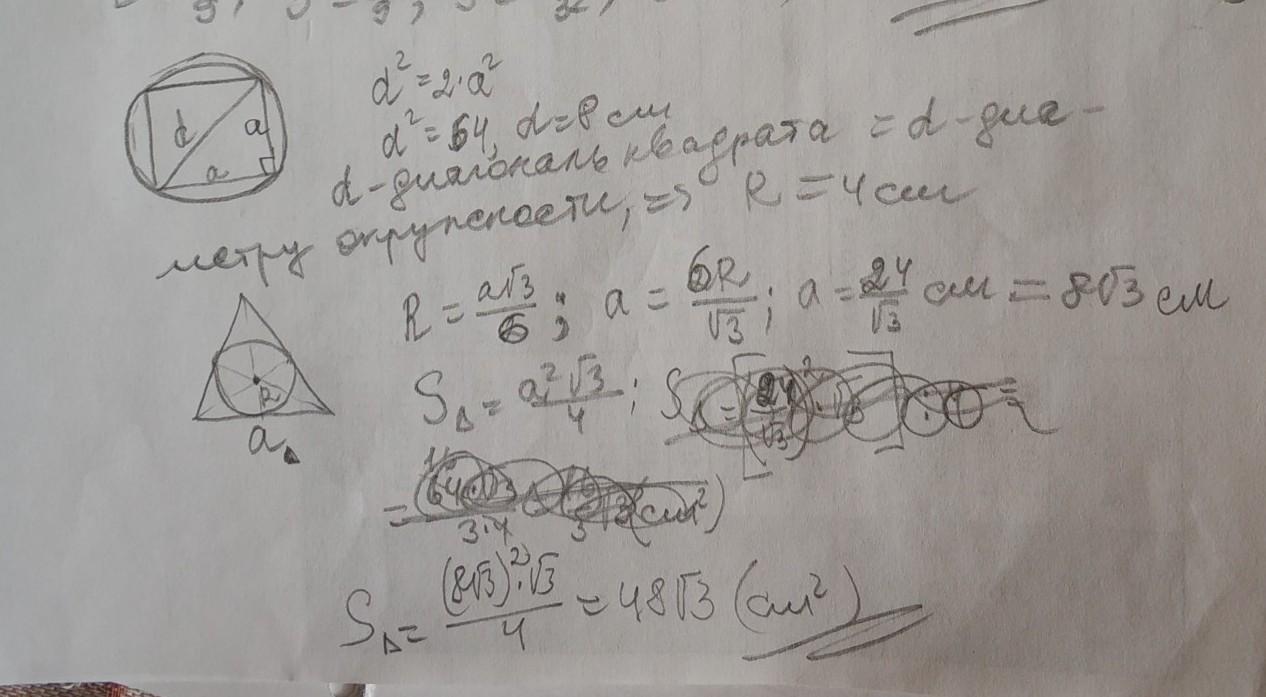 d² = 2·a²
d² = 64, d = 8 см
d - диагональ квадрата = d - диа-
метру окружности, => R = 4 см
d a a
R = a√3/6; a = 6R/√3; a = 24/√3 см = 8√3 см
S△ = a²√3/4; S
R
a△
S△ = (8√3)²·√3/4 = 48√3 (см²)